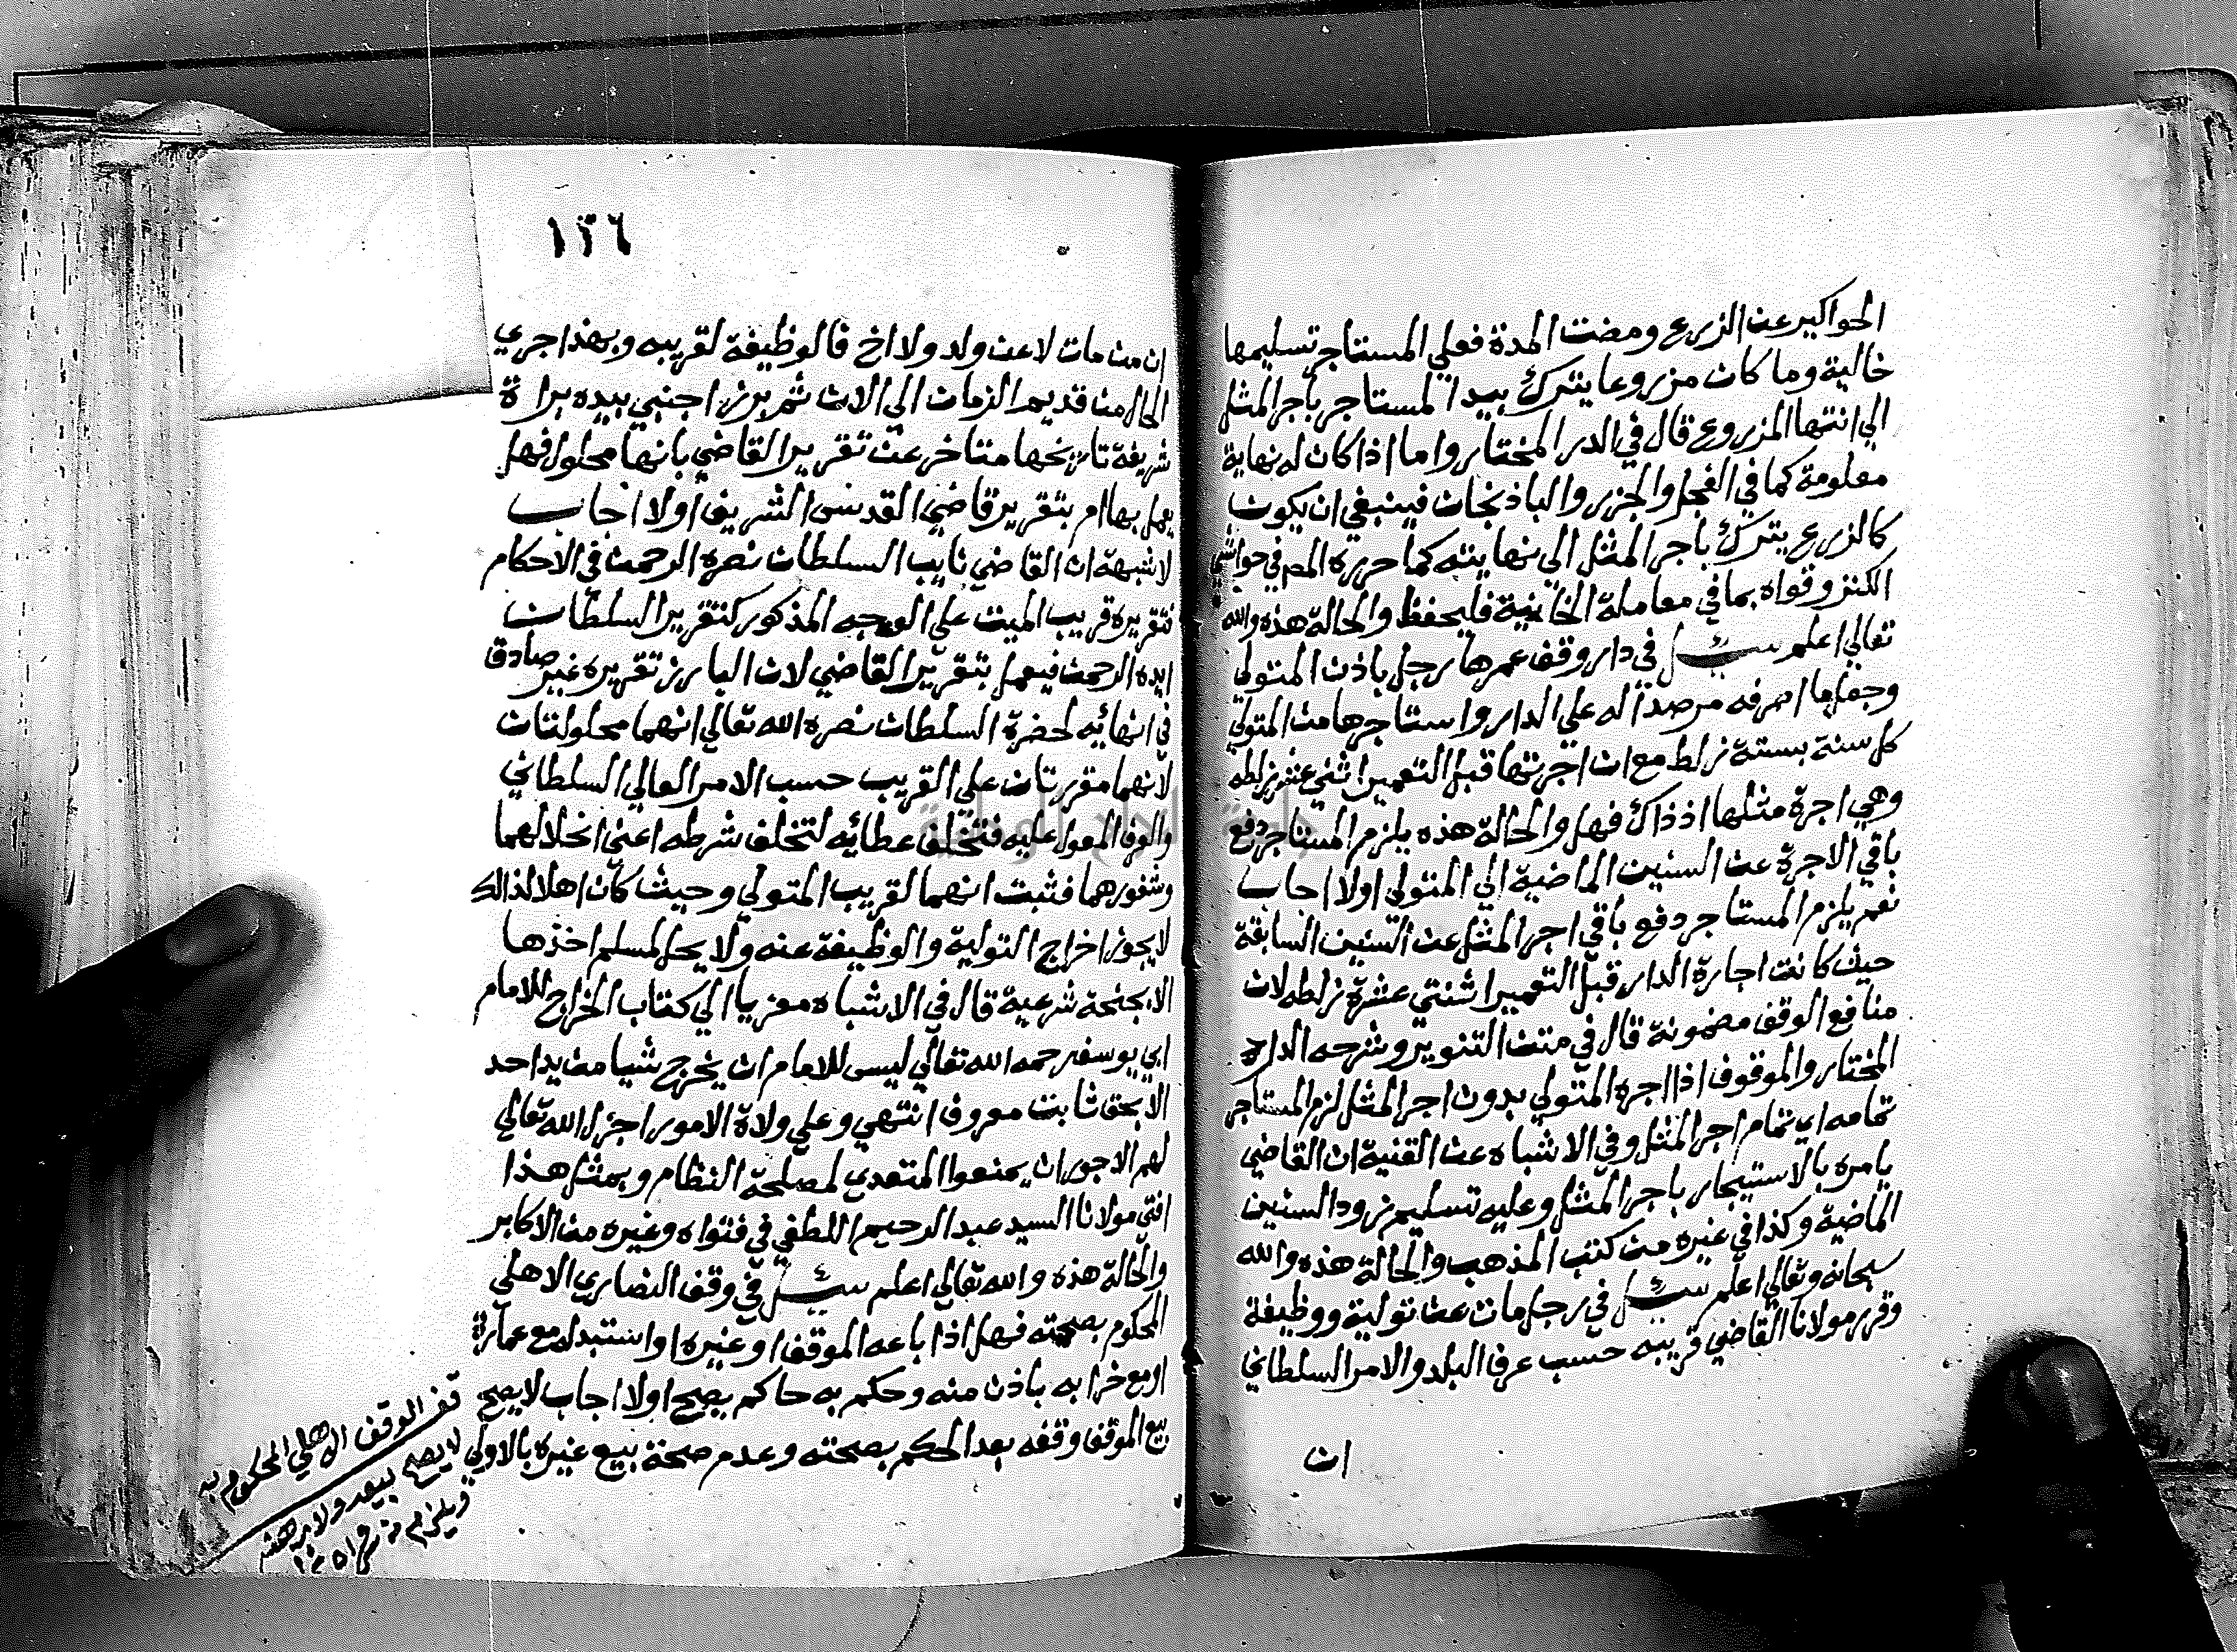 الحواكير عن الزرع ومضت المدة فعلي المستاجر تسليمها
خالية وما كان مزروعا يترك بيد المستاجر باجر المثل
الي انتها المزروع قال في الدر المختار واما اذا كان له نهاية
معلومة كما في الفجل والجزر والباذنجان فينبغي ان يكون
كالزرع يترك باجر المثل الي نهايته كما حرره المص في حواشي
الكنز وقواه بما في معاملة الخانية فليحفظ والحالة هذه والله
تعالي اعلم سئل في دار وقف عمرها رجل باذن المتولي
وجعل ما صرفه مرصدا له علي الدار واستاجرها من المتولي
كل سنة بستة زلط مع ان اجرتها قبل التعمير اثني عشر زلطه
وهي اجرة مثلها اذ ذاك فهل والحالة هذه يلزم المستاجر دفع
باقي الاجرة عن السنين الماضية الي المتولي اولا اجاب
نعم يلزم المستاجر دفع باقي اجر المثل عن السنين السابقة
حيث كانت اجارة الدار قبل التعمير اثنتي عشرة زلطه لان
منافع الوقف مضمونة قال في متن التنوير وشرحه الدار
المختار والموقوف اذا اجره المتولي بدون اجر المثل لزم المستاجر
تمامه اي تمام اجر المثل وفي الاشباه عن القنية ان القاضي
يامره بالاستيجار باجر المثل وعليه تسليم زود السنين
الماضية وكذا في غيره من كتب المذهب والحالة هذه والله
سبحانه وتعالي اعلم سئل في رجل مات عن تولية ووظيفة
وقرر مولانا القاضي قريبه حسب عرف البلد والامر السلطاني
ان
١٣٦
ان من مات لا عن ولد ولا اخ فالوظيفة لقريبه وبهذا جري
الحال من قديم الزمان الي الان ثم برز اجنبي بيده براة
شريفة تاريخها متاخر عن تقرير القاضي بانها محلول فهل
يعمل بها ام بتقرير قاضي القدس الشريف اولا اجاب
لاشبهة ان القاضي نايب السلطان نصره الرحمن في الاحكام
فتقريره قريب الميت علي الوجه المذكور كتقرير السلطان
ايده الرحمن فيعمل بتقرير القاضي لان البارز تقريره غير صادق
في انهائيه لحضرة السلطان نصره الله تعالي انهما محلولتان
لانهما مقررتان علي القريب حسب الامر العالي السلطاني
والعرف المعول عليه فتخلف عطائيه لتخلف شرطه اعني انحلالهما
وشغورهما فثبت انهما لقريب المتولي وحيث كان اهلا لذالك
لا يجوز اخراج التولية والوظيفة عنه ولا يحل لمسلم اخذها
الا بجنحة شرعية قال في الاشباه معزيا الي كتاب الخراج للامام
ابي يوسف رحمه الله تعالي ليس للامام ان يخرج شيا من يد احد
الا بحق ثابت معروف انتهي وعلي ولاة الامور اجزل الله تعالي
لهم الاجور ان يمنعوا المتعدي لمصلحة النظام وبمثل هذا
افتي مولانا السيد عبد الرحيم اللطفي في فتواه وغيره من الاكابر
والحالة هذه والله تعالي اعلم سئل في وقف النصاري الاهلي
المحكوم بصحته فهل اذا باعه الموقف او غيره او استبدله مع عمارة
او مع خرابه باذن منه وحكم به حاكم يصح اولا اجاب لا يصح
بيع الموقف وقفه بعد الحكم بصحته وعدم صحة بيع غيره بالاولي
قف الوقف الاهلي المحكوم به
لا يصح بيعه ولا رهنه